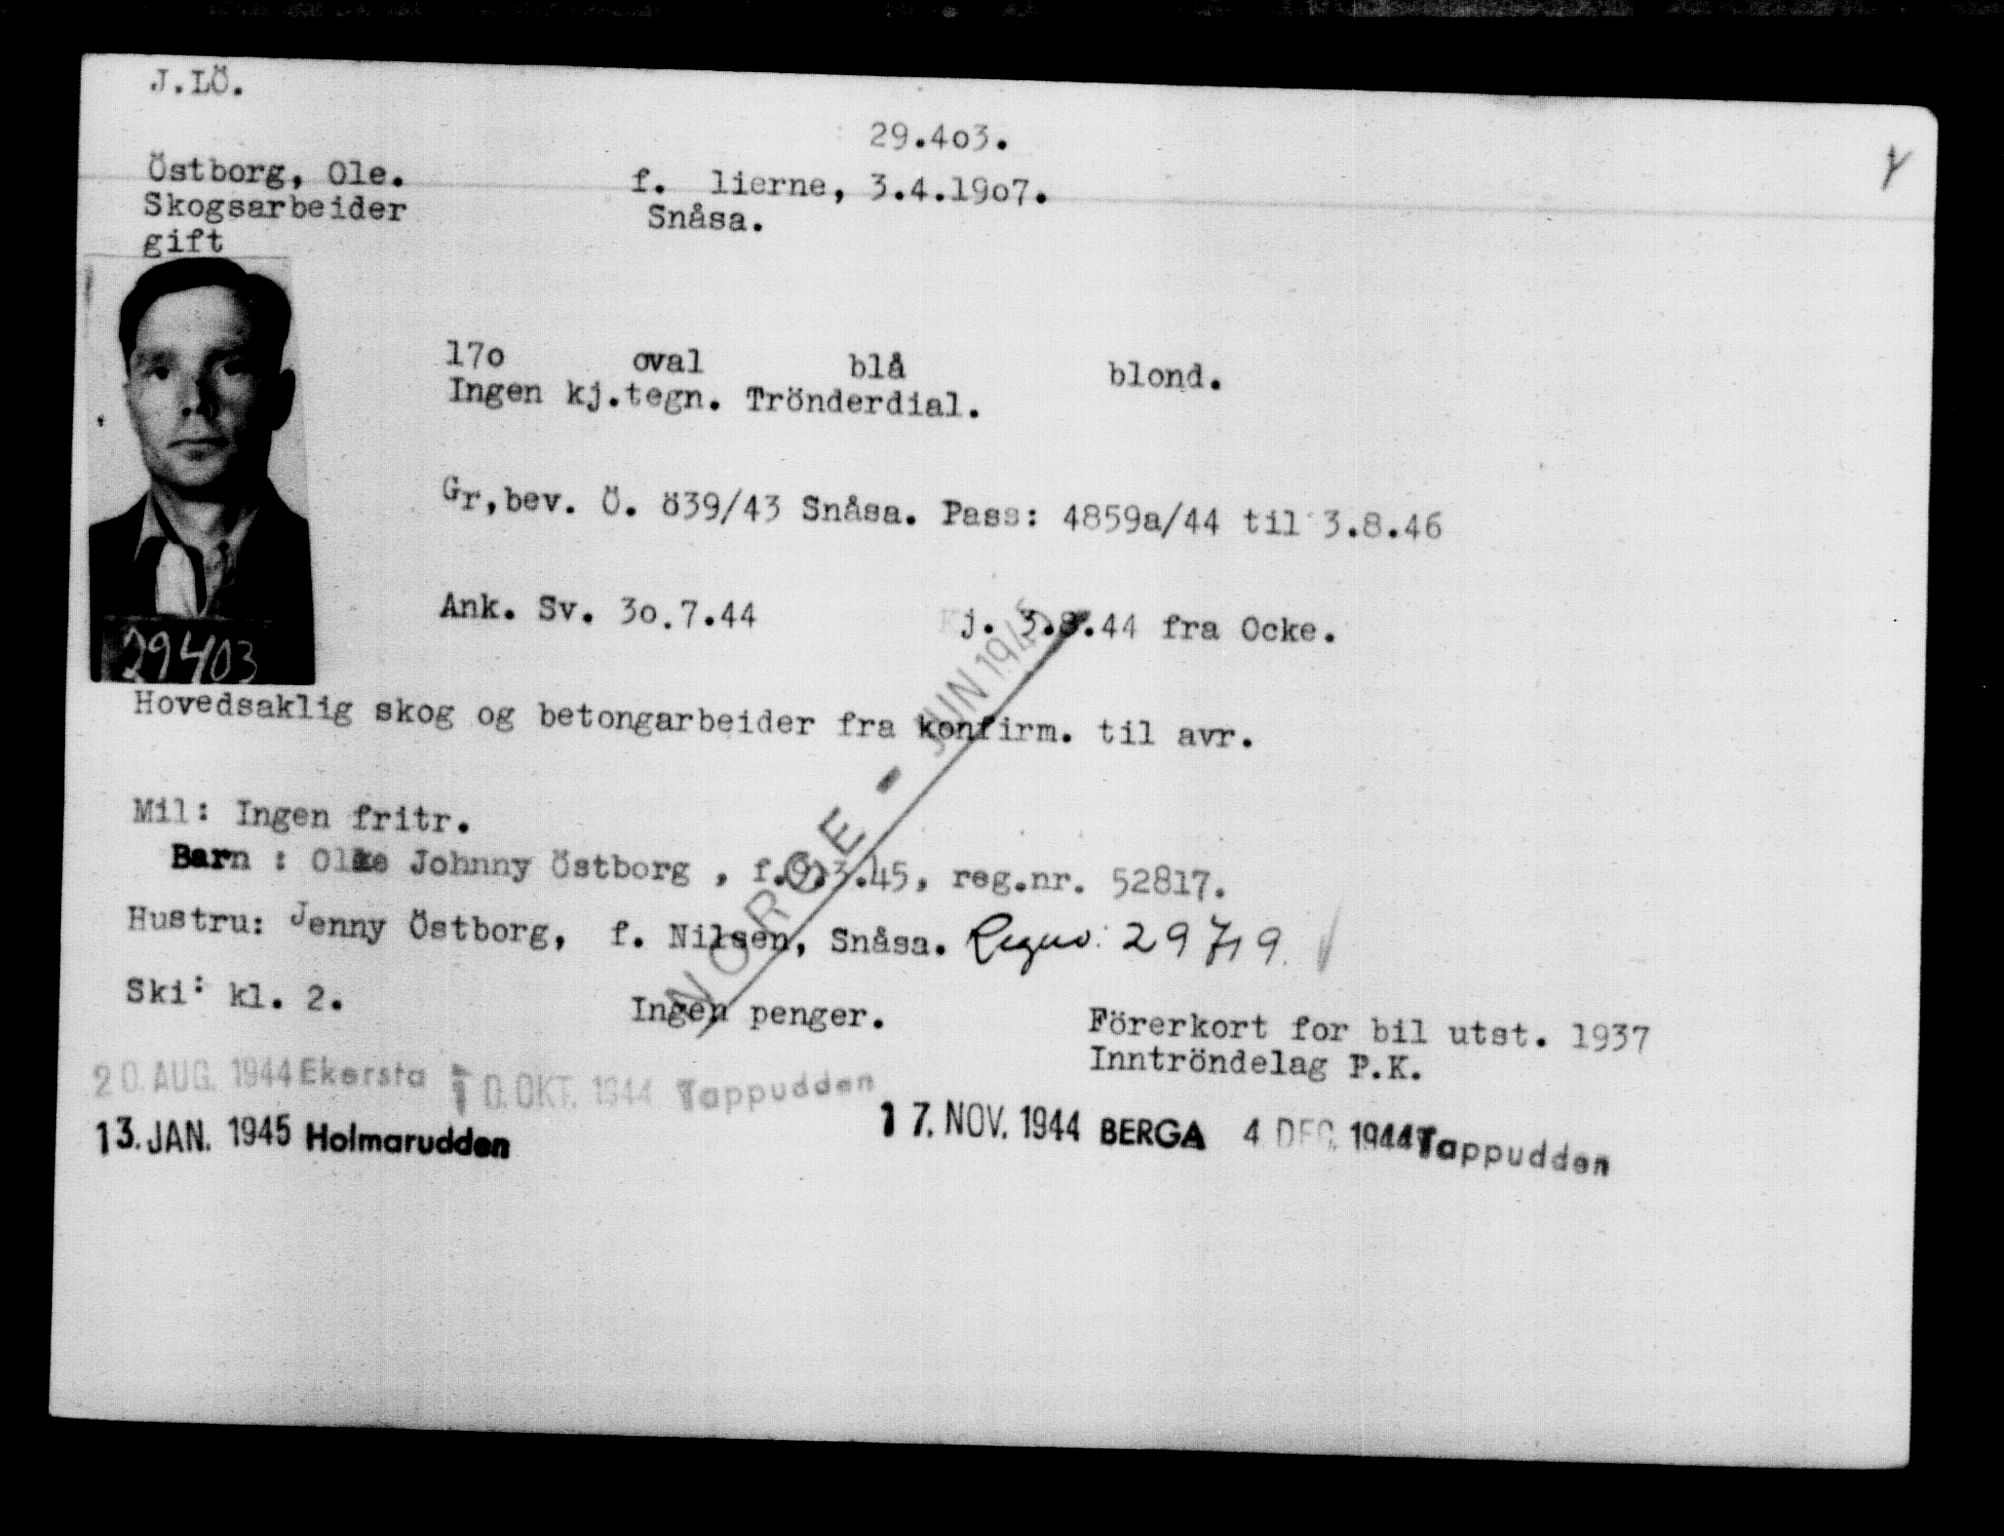 J.LÖ.
29.4o3.
Östborg, Ole. f. lierne, 3.4.19o7.
Skogsarbeider Snåsa.
gift
17o oval blå blond.
Ingen kj.tegn. Trönderdial.
Gr,bev. Ö. ö39/43 Snåsa. Pass: 4859a/44 til 3.8.46
Ank. Sv. 3o.7.44 Kj. 3.8.44 fra Ocke.
29403
Hovedsaklig skog og betongarbeider fra konfirm. til avr.
NORGE - JUN 1945
Mil: Ingen fritr.
Barn : Johnny Östborg , f.9.3.45, reg.nr. 52817.
Hustru: Jenny Östborg, f. Nilsen, Snåsa. Regnr: 29719.
Ski: kl. 2. Ingen penger. Förerkort for bil utst. 1937
Inntröndelag P.K.
20. AUG. 1944 Ekersta 10. OKT. 1944 Tappudden
13. JAN. 1945 Holmarudden 17. NOV. 1944 BERGA 4 DEC. 1944 Tappudden